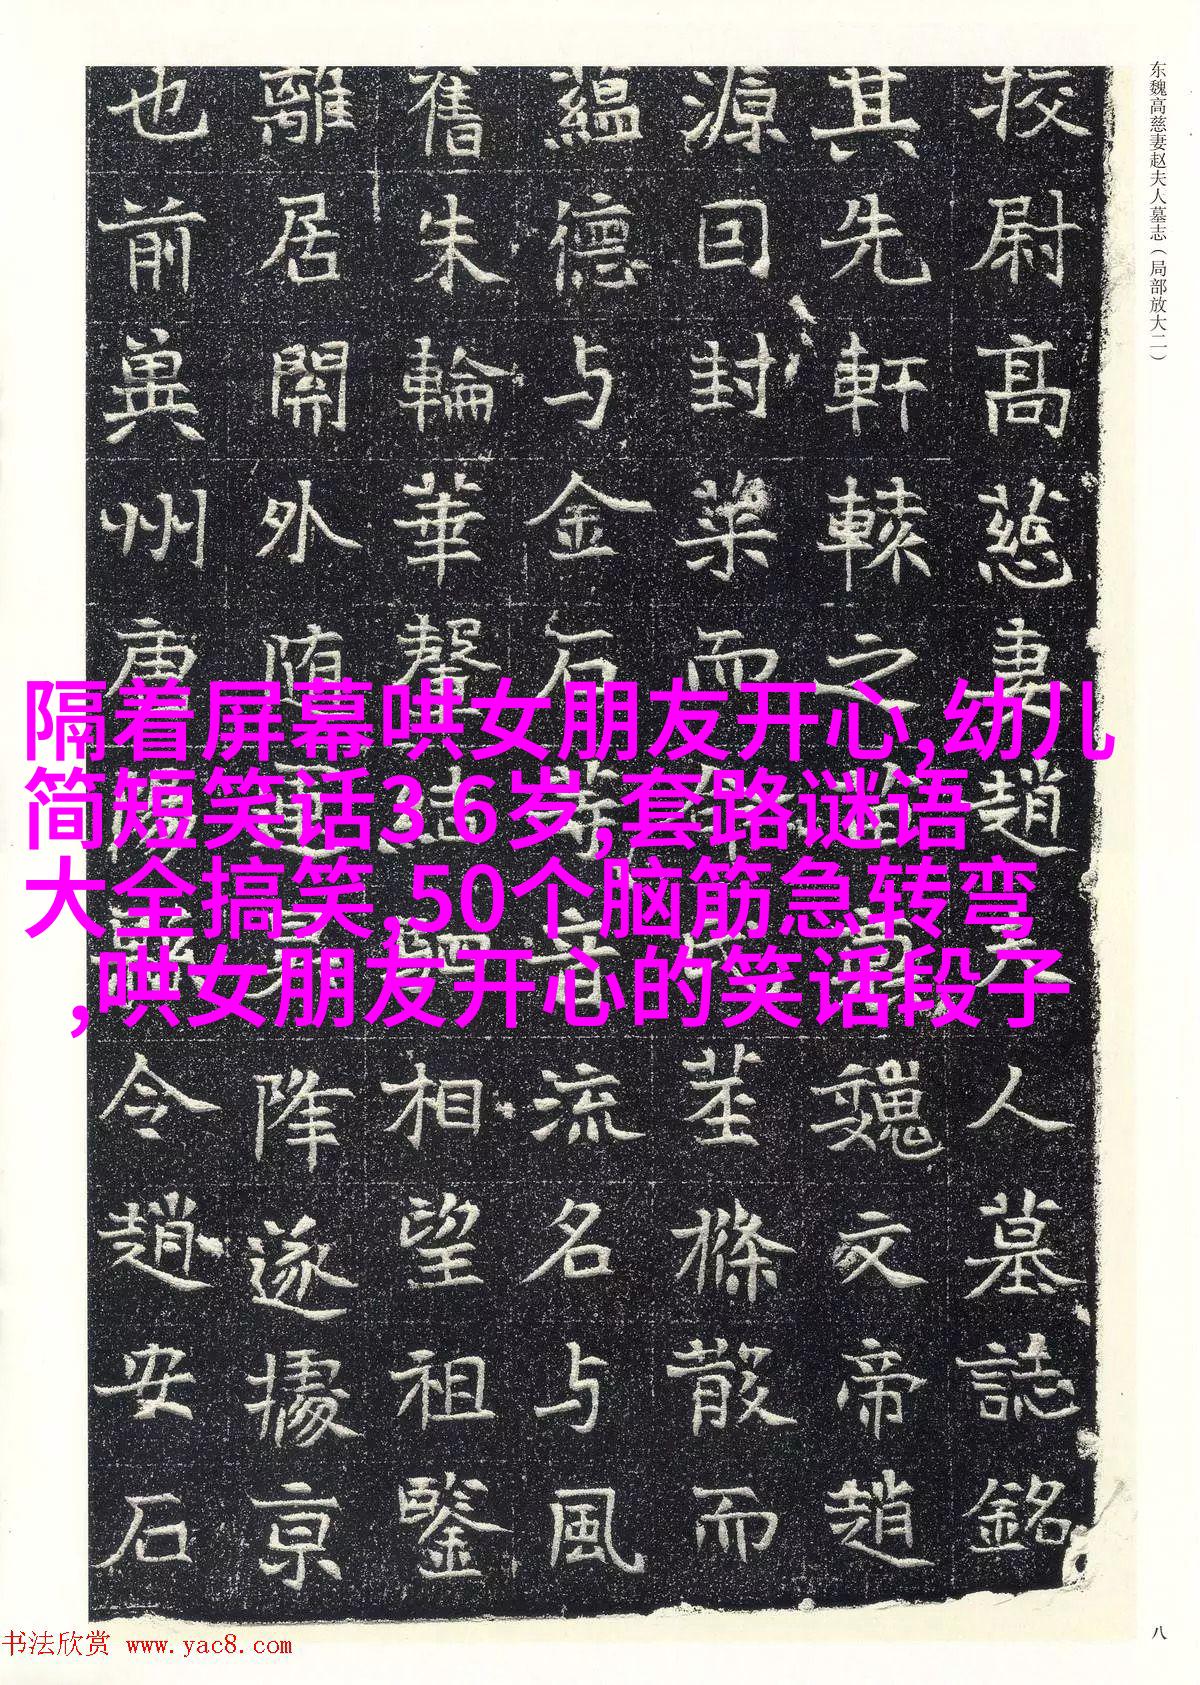 东魏高慈妻赵夫人墓志（局部放大二）
校尉高慈妻趙夫人墓誌銘
其先軒轅之苗裔魏文帝趙
源囙封而茎條散而
蘊德与金石等音流名与風
舊朱輪華相望祖鑒
離居開外随降遂據京
也前冀州唐陽縣令趙安石
八
隔着屏幕哄女朋友开心,幼儿
简短笑话3 6岁,套路谜语
大全搞笑,50个脑筋急转弯
,哄女朋友开心的笑话段子
书法欣赏 www.yac8.com